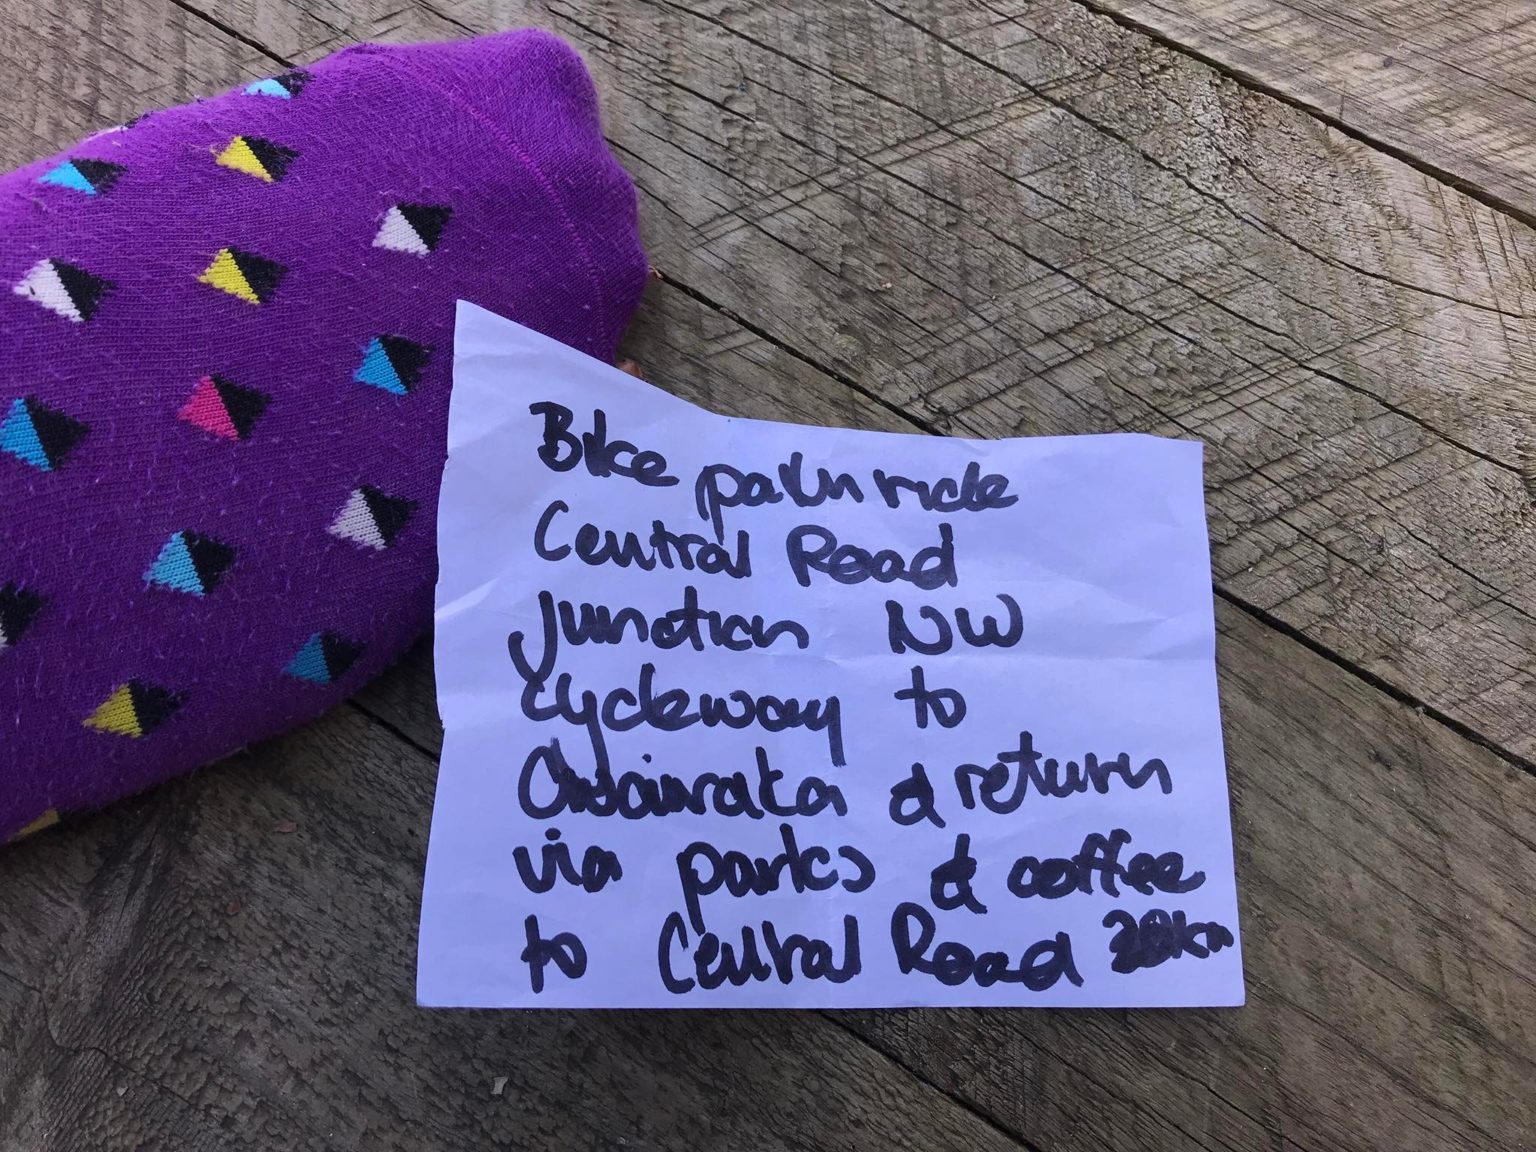 Bike path ride
Central Road
Junction NW
cycleway to
& return
via parks & coffee
to Central Road km